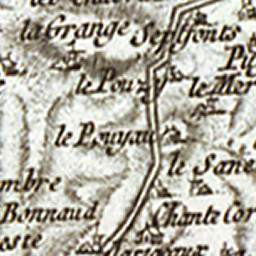 la Grange
Septfonts
le Pouzy
le Mer
le Pouyau
le Sane
mbre
Bonnaud
Chante Cor
este